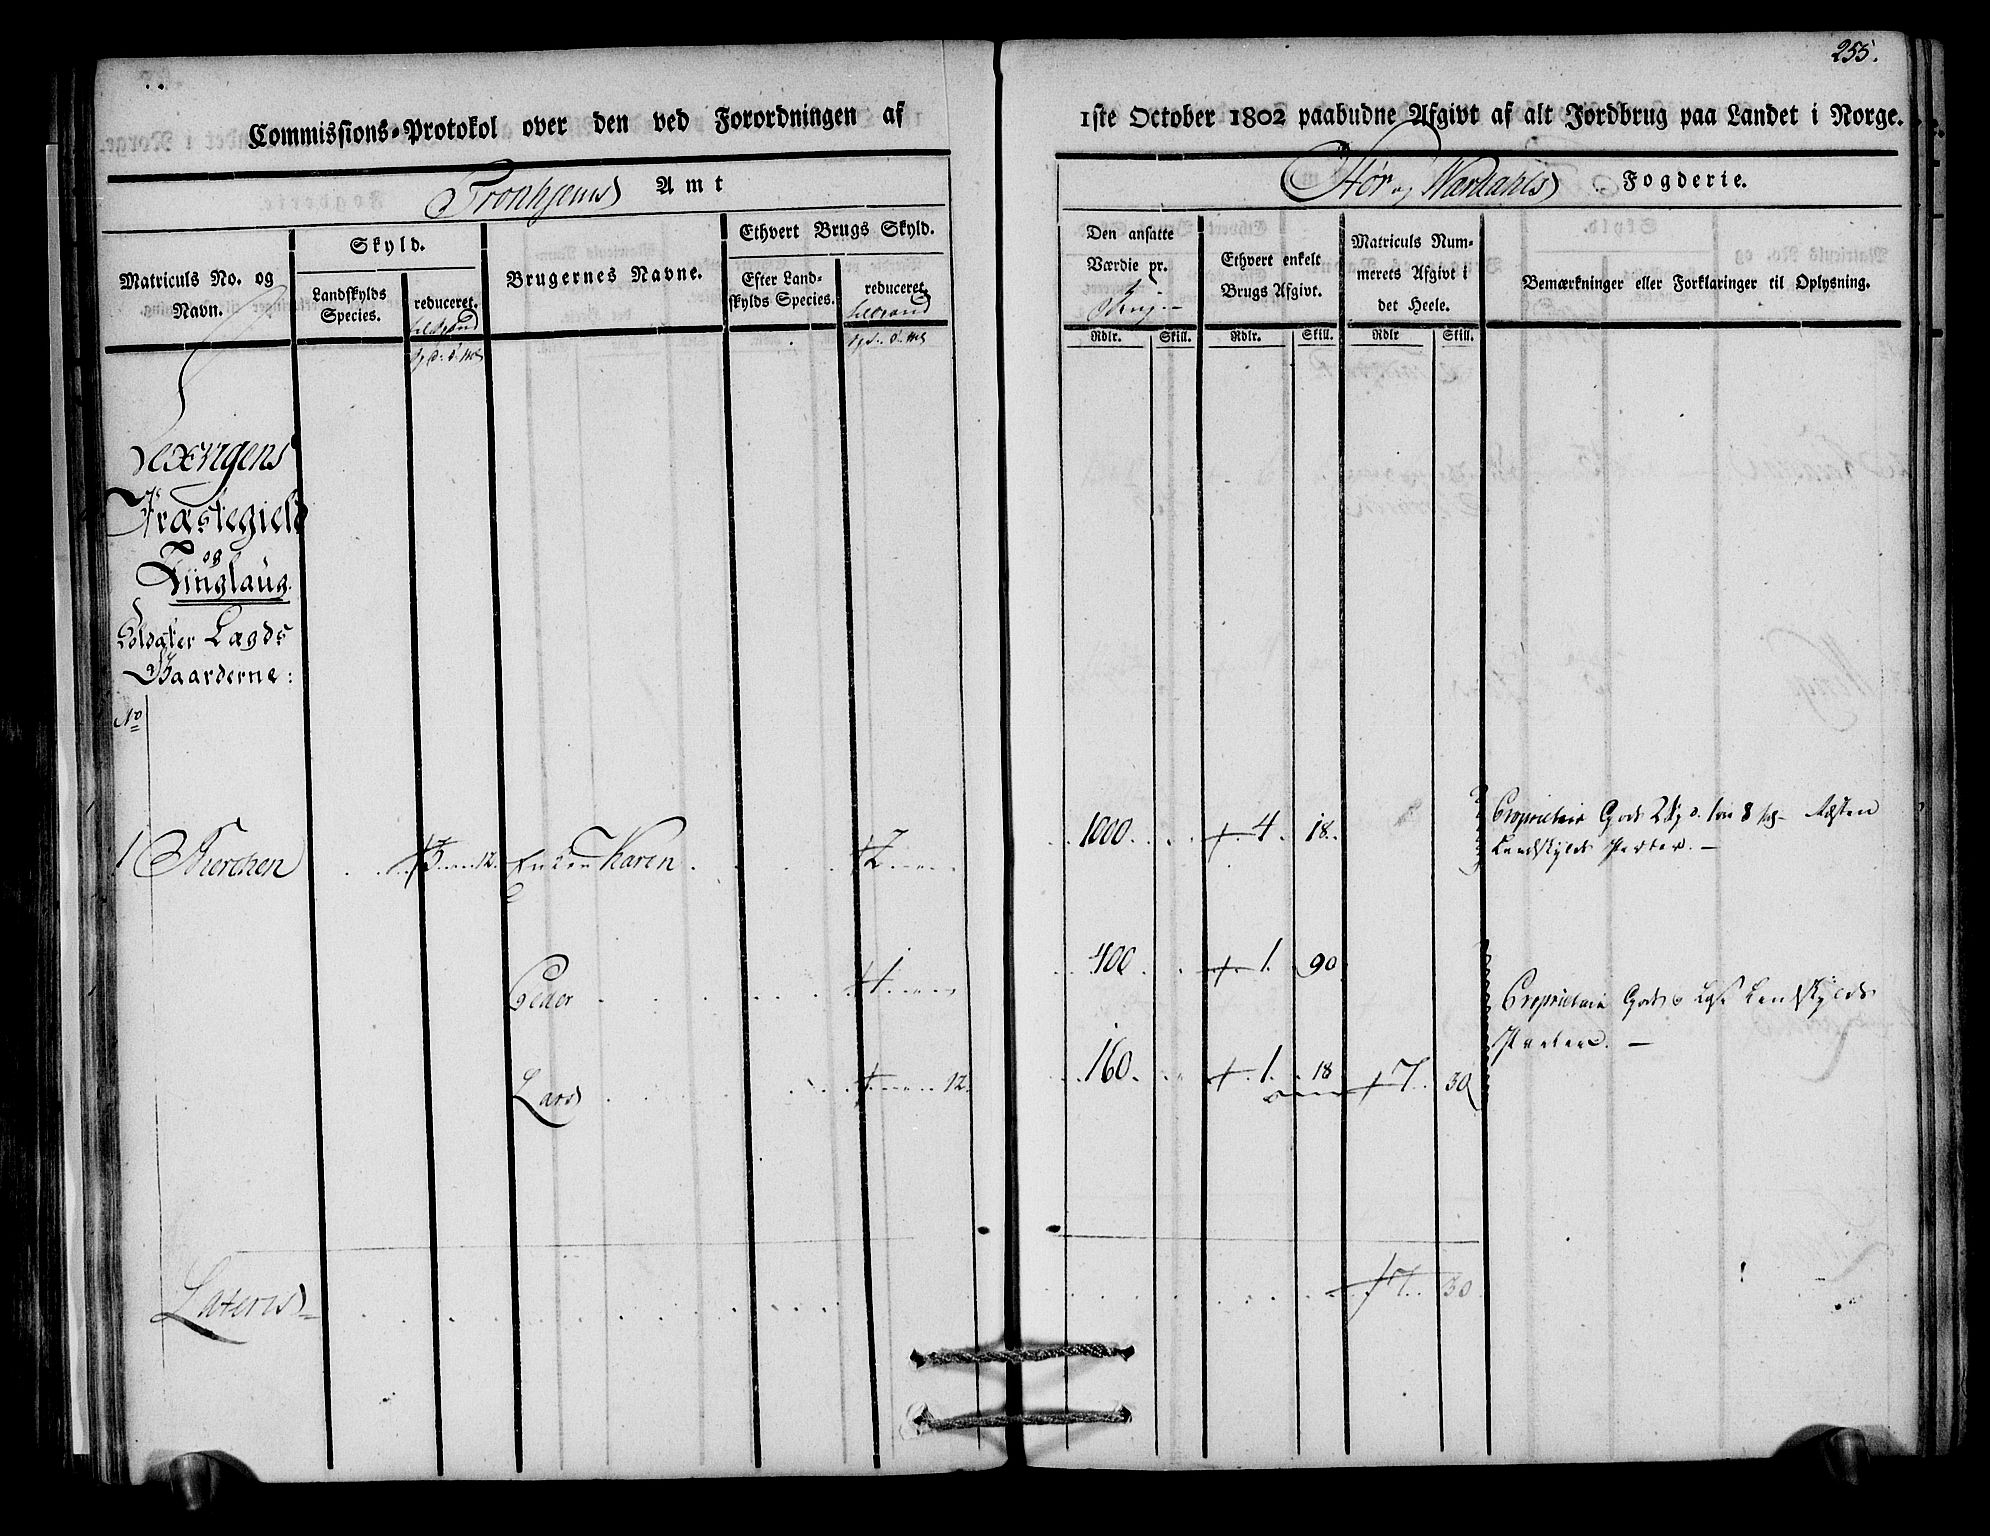 255.
Commissions-Protokol over den ved Forordningen af 1ste October 1802 paabudne Afgivt af alt Jordbrug paa Landet i Norge.
Tronhjems Amt
Stør og Værdahls Fogderie.
Matriculs No. og Navn.
Skyld.
Landskylds Species.
reduceret.
Brugernes Navne.
Ethvert Brugs Skyld.
Efter Landskylds Species.
reduceret.
Den ansatte Værdie pr.
Ethvert enkelt Brugs Afgivt.
Matriculs Nummerets Afgivt i det Heele.
Bemærkninger eller Forklaringer til Oplysning.
Rdlr. Skill. Rdlr. Skill. Rdlr Skill.
Lexvigens
Præstegield
og
Tinglaug.
Soldater Lægds
Gaarderne:
No
1 Kierchen 3 12. Enken Karen 2 1000 4 18. Proprietair Gods
Landskylds Parter.
Peder 1 400 1 90 Proprietair Gods Landskylds
Parter.
Lars 12. 160 1 18 7 30
Lateris 7 30